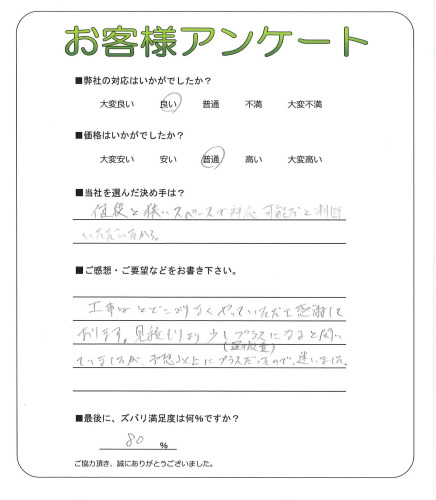 お客様アンケート
■弊社の対応はいかがでしたか？
大変良い 良い 普通 不満 大変不満
■価格はいかがでしたか？
大変安い 安い 普通 高い 大変高い
■当社を選んだ決め手は？
値段と狭いスペースで対応可能だと判断
いただいたから。
■ご感想・ご要望などをお書き下さい。
工事はとどこおりなくやっていただき感謝して
おります。見積もりより少しプラスになると伺っ
(運搬費)
ていましたが、予想以上にプラスだったので、迷いました。
■最後に、ズバリ満足度は何%ですか？
80 %
ご協力頂き、誠にありがとうございました。